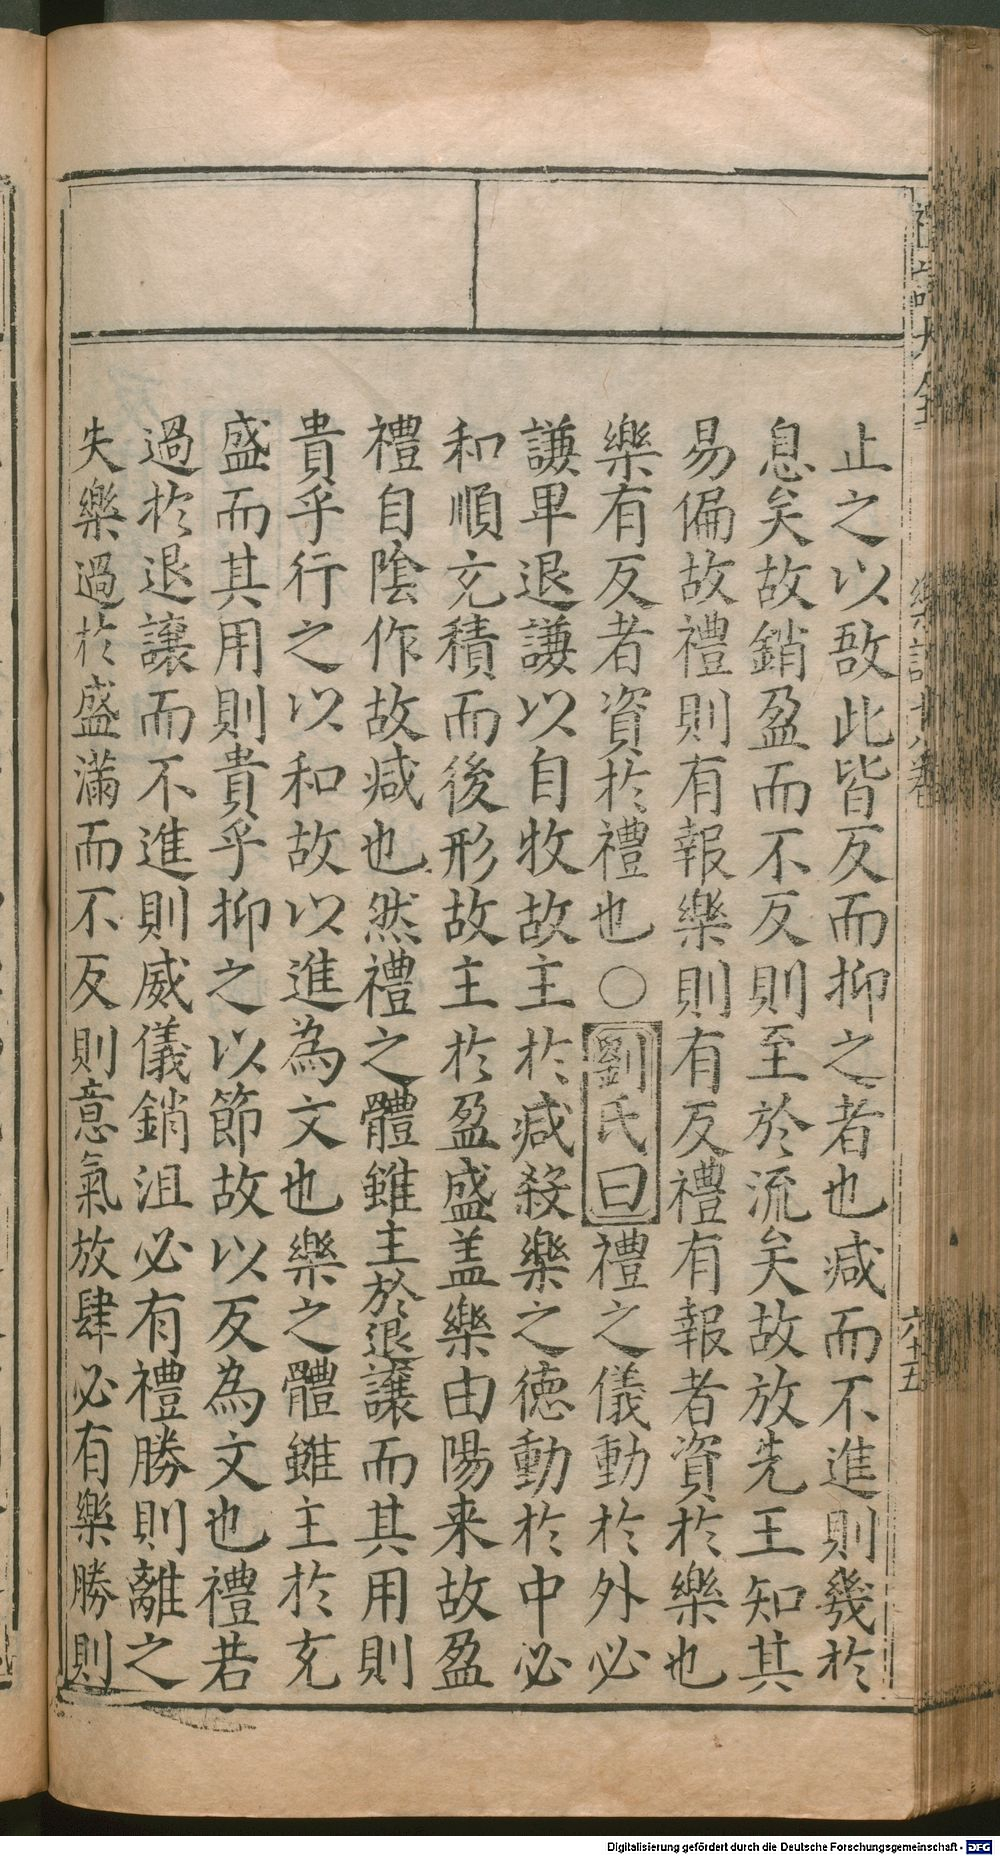 止之以敔此皆反而抑之者也减而不進則幾於
息矣故銷盈而不反則至於流矣故放先王知其
易偏故禮則有報樂則有反禮有報者資於樂也
樂有反者資於禮也○劉氏曰禮之儀動於外必
謙卑退謙以自牧故主於减殺樂之德動於中必
和順充積而後形故主於盈盛盖樂由陽来故盈
禮自陰作故减也然禮之體雖主於退讓而其用則
貴乎行之以和故以進為文也樂之體雖主於充
盛而其用則貴乎抑之以節故以反為文也禮若
過於退讓而不進則威儀銷沮必有禮勝則離之
失樂過於盛滿而不反則意氣放肆必有樂勝則
六十五
Digitalisierung gefördert durch die Deutsche Forschungsgemeinschaft - DFG